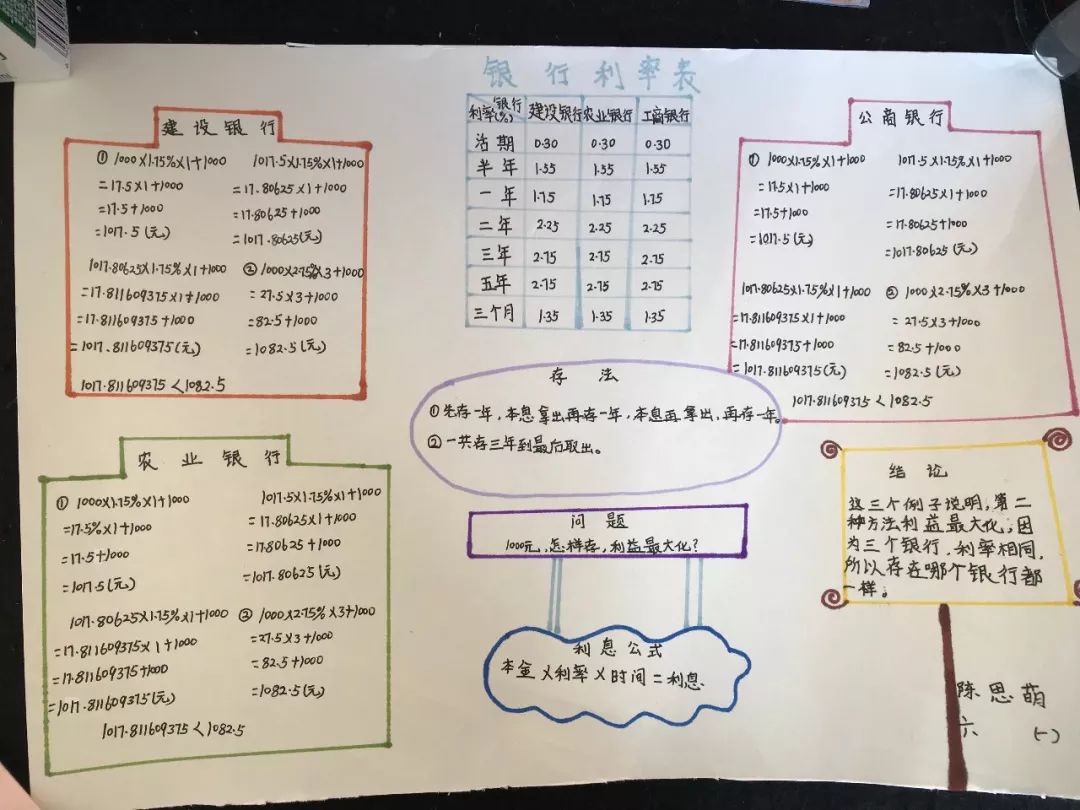 银行利率表
银行
利率(%) 建设银行 农业银行 工商银行
活期 0.30 0.30 0.30
半年 1.55 1.55 1.55
一年 1.75 1.75 1.75
二年 2.25 2.25 2.25
三年 2.75 2.75 2.75
五年 2.75 2.75 2.75
三个月 1.35 1.35 1.35
建设银行
① 1000×1.75%×1+1000
=17.5×1+1000
=17.5+1000
=1017.5(元)
1017.5×1.75%×1+1000
=17.80625×1+1000
=17.80625+1000
=1017.80625(元)
1017.80625×1.75%×1+1000
=17.811609375×1+1000
=17.811609375+1000
=1017.811609375(元)
② 1000×2.75%×3+1000
=27.5×3+1000
=82.5+1000
=1082.5(元)
1017.811609375<1082.5
公商银行
① 1000×1.75%×1+1000
=17.5×1+1000
=17.5+1000
=1017.5(元)
1017.5×1.75%×1+1000
=17.80625×1+1000
=17.80625+1000
=1017.80625(元)
1017.80625×1.75%×1+1000
=17.811609375×1+1000
=17.811609375+1000
=1017.811609375(元)
② 1000×2.75%×3+1000
=27.5×3+1000
=82.5+1000
=1082.5(元)
1017.811609375<1082.5
存法
①先存一年,本息拿出再存一年,本息再拿出,再存一年。
②一共存三年到最后取出。
农业银行
① 1000×1.75%×1+1000
=17.5%×1+1000
=17.5+1000
=1017.5(元)
1017.5×1.75%×1+1000
=17.80625×1+1000
=17.80625+1000
=1017.80625(元)
1017.80625×1.75%×1+1000
=17.811609375×1+1000
=17.811609375+1000
=1017.811609375(元)
② 1000×2.75%×3+1000
=27.5×3+1000
=82.5+1000
=1082.5(元)
1017.811609375<1082.5
问题
1000元,怎样存,利益最大化?
利息公式
本金×利率×时间=利息
结论
这三个例子说明,第二
种方法利益最大化;因
为三个银行,利率相同,
所以存在哪个银行都
一样。
陈思萌
六(一)